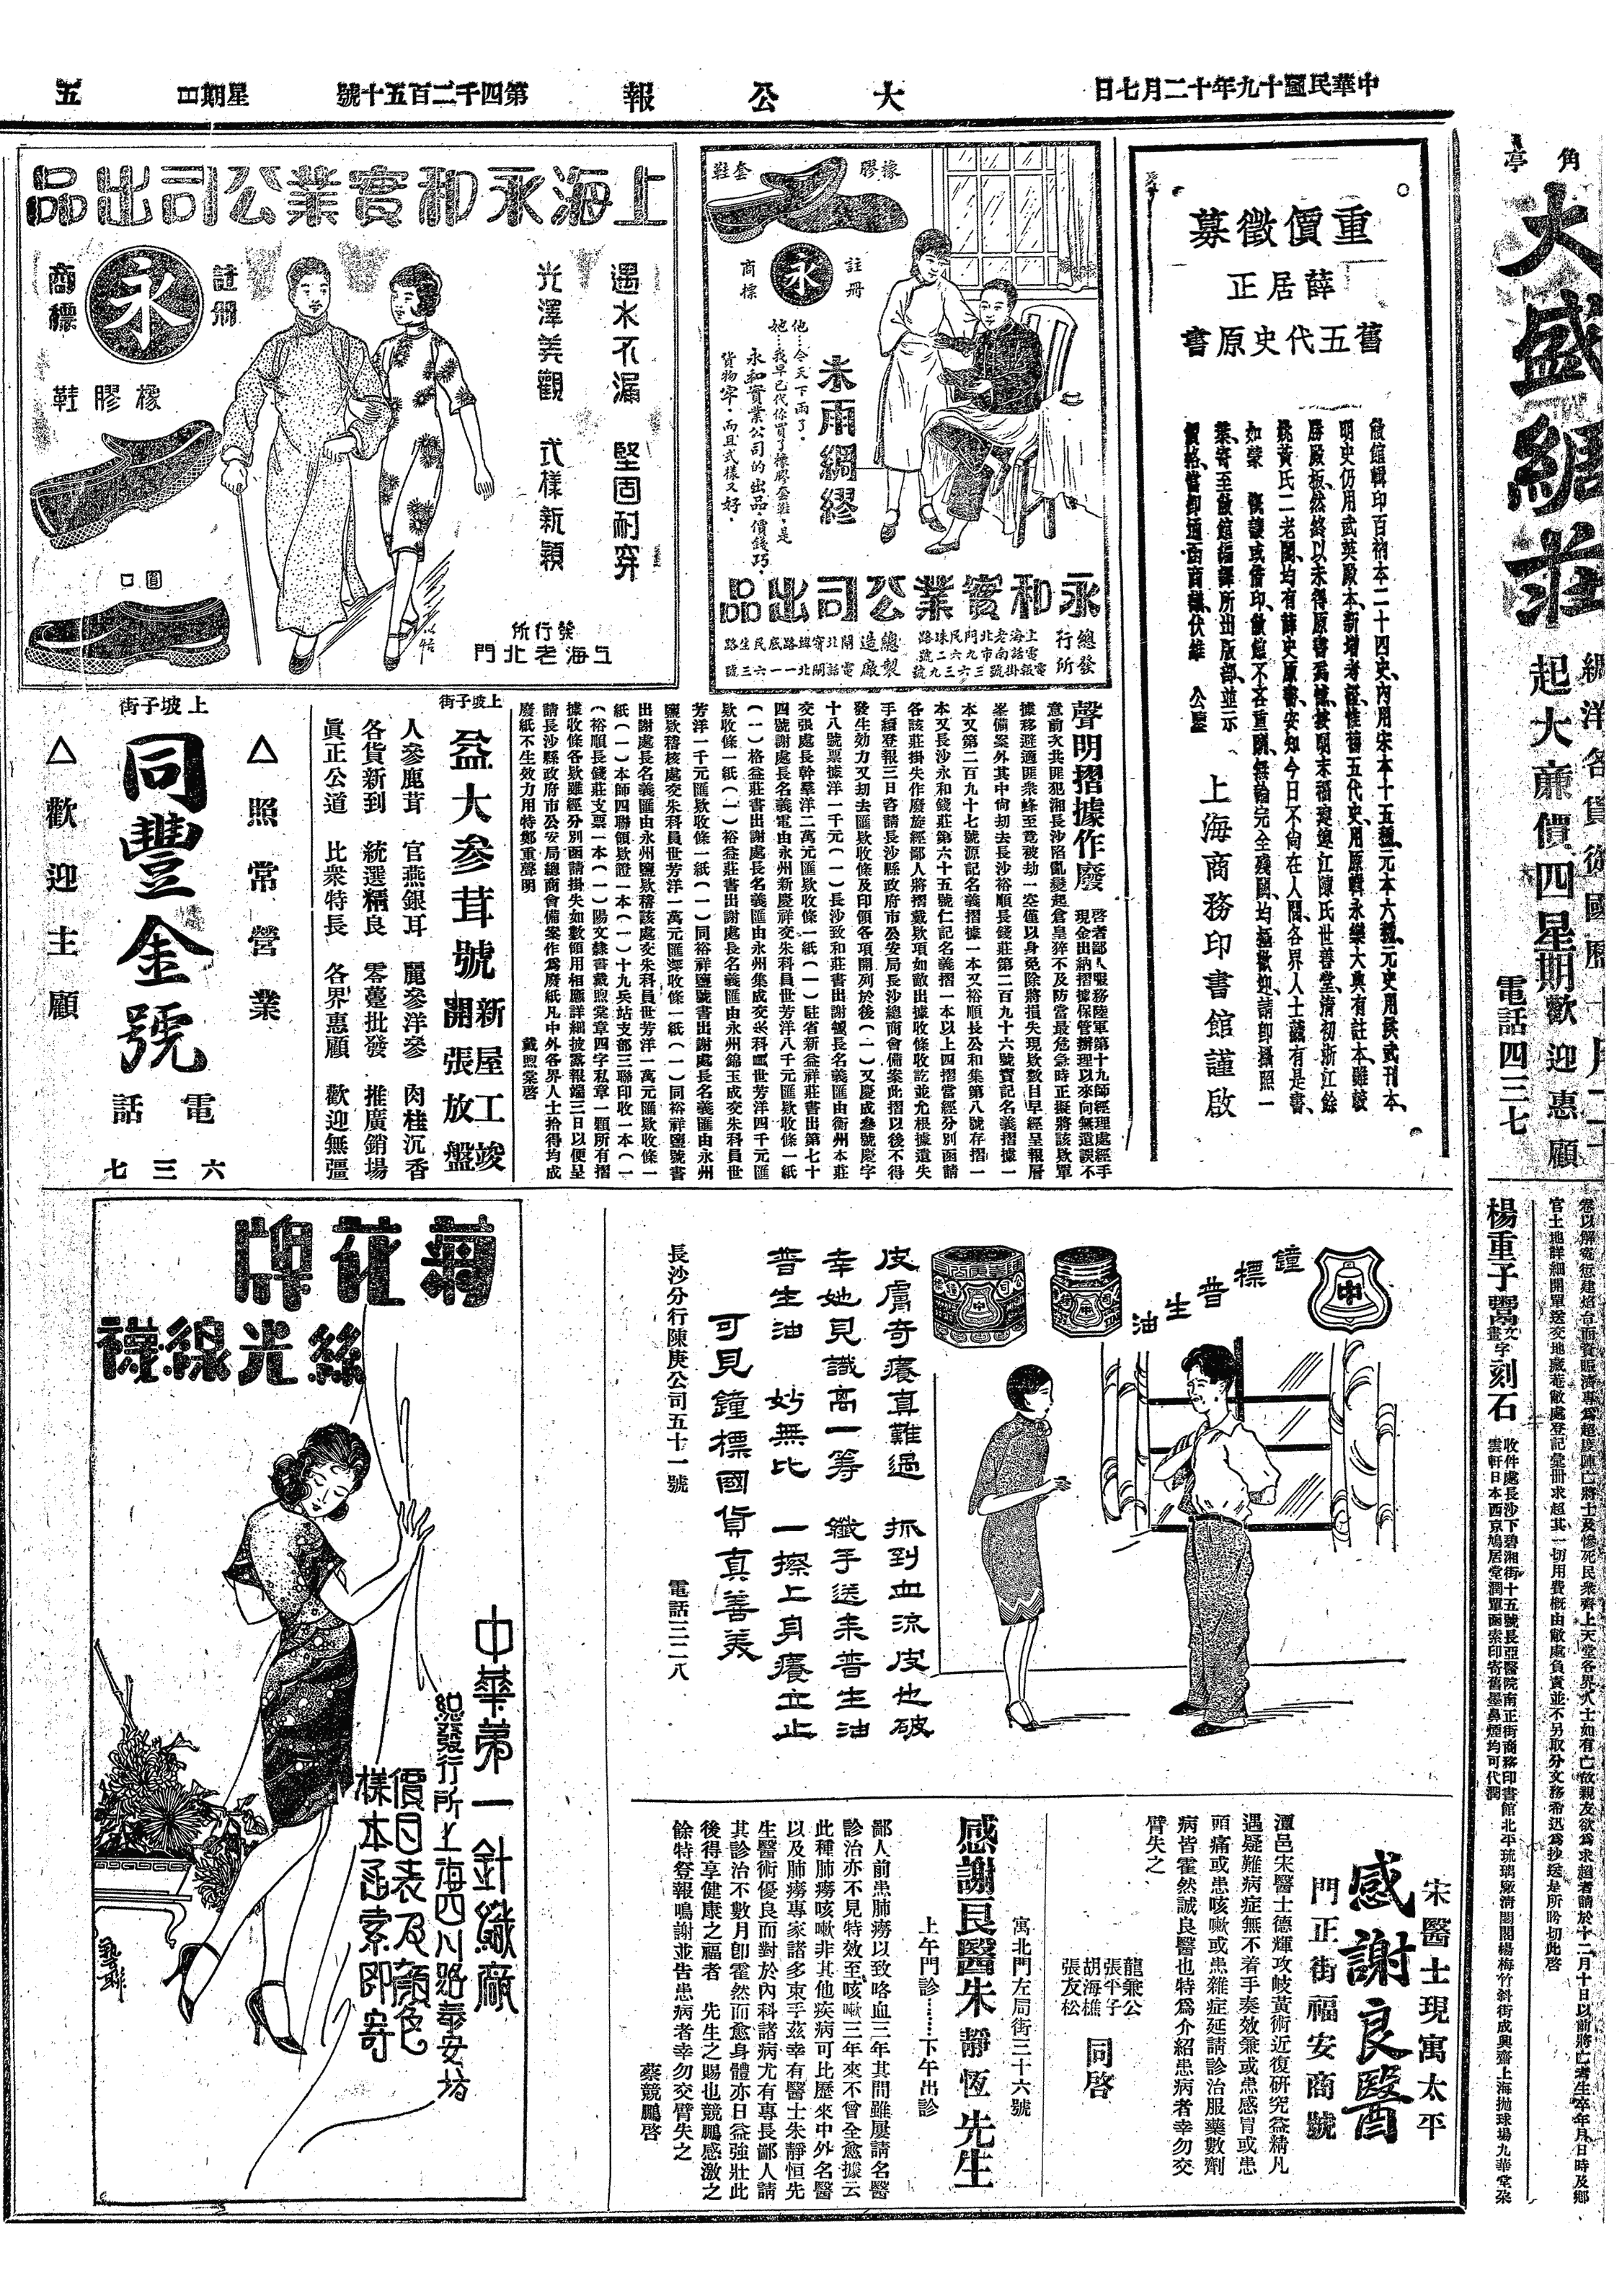 中華民國十九年十二月七日
大公報
第四千二百五十號
星期日
五
角亭
大盛綢莊
起大廉價四星期歡迎惠顧
電話四三七
重價徵募
薛居正
舊五代史原書
敝館輯印百衲本二十四史、內用宋本十五種、元本六種、元史用洪武刊本、
明史仍用武英殿本、新增考證、惟舊五代史、用原輯永樂大典有註本、雖較
勝殿板、然終以未得原書為憾、按明末福建連江陳氏世善堂、清初浙江餘
姚黃氏二老閣、均有薛史原書、安知今日不尚在人間、各界人士藏有是書、
如蒙 慨讓或借印、敝館不吝重酬、無論完全殘闕、均極歡迎、請即攝照一
葉、寄至敝館編譯所出版部、並示
價格、當即通函商議、伏維 公鑒
上海商務印書館謹啟
橡膠
套鞋
註冊
商標
永
未雨綢繆
他…今天下雨了。
她…我早已代你買了橡膠套鞋、是
永和實業公司的出品。價錢巧。
貨物牢。而且式樣又好。
永和實業公司出品
總發行所
上海老北門民珠路
電話南市九六二號
電報掛號三六三九號
總製造廠
閘北寶緯路底民生路
電話閘北一一六三號
上海永和實業公司出品
註冊
商標
永
橡膠鞋
圓口
遇水不漏 堅固耐穿
光澤美觀 式樣新穎
發行所
上海老北門
聲明摺據作廢
啓者鄙人服務陸軍第十九師經理處經手
現金出納摺據保管辦理以來向無遺誤不
意前次共匪犯湘長沙陷亂變起倉皇猝不及防當最危急時正擬將該欵單
據移避適匪衆蜂至竟被劫一空僅以身免除將損失現欵數目早經呈報層
峯備案外其中尙刧去長沙裕順長錢莊第二百九十六號寶記名義摺據一
本又第二百九十七號源記名義摺據一本又裕順長公和集第八號存摺一
本又長沙永和錢莊第六十五號仁記名義摺一本以上四摺當經分別函請
各該莊掛失作廢旋經鄙人將摺戴欵項如敵出據收條收訖並允根據遺失
手續登報三日咨請長沙縣政府市公安局長沙總商會備案此摺以後不得
發生効力又刧去匯欵收條及印領各項開列於後(一)又慶成叁號慶字
十八號票據洋一千元(一)長沙致和莊書出謝號長名義匯由衡州本莊
交張處長幹羣洋二萬元匯欵收條一紙(一)駐省新益祥莊書出第七十
四號謝處長名義電由永州新慶祥交朱科員世芳洋八千元匯欵收條一紙
(一)格益莊書出謝處長名義匯由永州集成交朱科員世芳洋四千元匯
欵收條一紙(一)裕益莊書出謝處長名義匯由永州錦玉成交朱科員世
芳洋一千元匯欵收條一紙(一)同裕祥鹽號書出謝處長名義匯由永州
鹽欵稽核處交朱科員世芳洋一萬元匯欵收條一紙(一)同裕祥鹽號書
出謝處長名義匯由永州鹽欵稽該處交朱科員世芳洋一萬元匯欵收條一
紙(一)本師四聯領欵證一本(一)十九兵站支部三聯印收一本(一
)裕順長錢莊支票一本(一)陽文隸書戴煦棠章四字私章一顆所有摺
據收條各欵雖經分別函請掛失如數領用相應詳細披露報端三日以便呈
請長沙縣政府市公安局總商會備案作爲廢紙凡中外各界人士拾得均成
廢紙不生效力用特鄭重聲明 戴煦棠啓
上坡子街
益大參茸號
新屋工竣
開張放盤
人參鹿茸 官燕銀耳 麗參洋參 肉桂沉香
各貨新到 統選精良 零躉批發 推廣銷場
眞正公道 比衆特長 各界惠顧 歡迎無彊
上坡子街
△照常營業
同豐金號
電話
六三七
△歡迎主顧
鐘標普生油
中
皮膚奇癢真難過 抓到血流皮也破
幸她見識高一籌 纖手送來普生油
普生油 妙無比 一擦上身癢立止
可見鐘標國貨真善美
長沙分行陳庚公司五十一號 電話三二八
菊花牌
絲光線襪
中華第一針織廠
總發行所上海四川路泰安坊
價目表及顏色
樣本函索即寄
宋醫士現寓太平
門正街福安商號
感謝良醫
潭邑宋醫士德輝攻岐黃術近復研究益精凡
遇疑難病症無不着手奏效兼或患感冒或患
頭痛或患咳嗽或患雜症延請診治服藥數劑
病皆霍然誠良醫也特爲介紹患病者幸勿交
臂失之
龍兼公
張平子
胡海樵
張友松
同啓
感謝良醫朱靜恆先生
寓北門左局街三十六號
上午門診……下午出診
鄙人前患肺癆以致咯血三年其間雖屢請名醫
診治亦不見特效至咳嗽三年來不曾全愈據云
此種肺癆咳嗽非其他疾病可比歷來中外名醫
以及肺癆專家諸多束手茲幸有醫士朱靜恒先
生醫術優良而對於內科諸病尤有專長鄙人請
其診治不數月卽霍然而愈身體亦日益強壯此
後得享健康之福者 先生之賜也競鵬感激之
餘特登報鳴謝並告患病者幸勿交臂失之
蔡競鵬啓
官土地詳細開單送交地藏菴敝處登記彙冊求超其一切用費槪由敝處負責並不另取分文務希迅爲抄送是所盼切此啓
楊重子
刻石
收件處長沙下碧湘街十五號長亞醫院南正街商務印書館北平琉璃廠淸閟閣楊梅竹斜街成興齋上海拋球場九華堂朶
雲軒日本西京鳩居堂潤單函索印寄舊墨鼻煙均可代潤